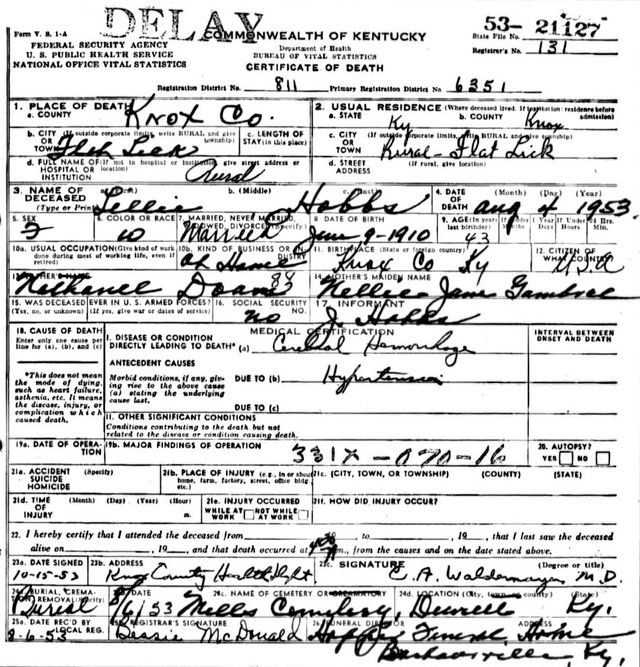 DELAY
Form V. S. 1-A
COMMONWEALTH OF KENTUCKY
53- 21127
State File No.
FEDERAL SECURITY AGENCY
Department of Health
Registrar's No. 131
U. S. PUBLIC HEALTH SERVICE
BUREAU OF VITAL STATISTICS
NATIONAL OFFICE VITAL STATISTICS
CERTIFICATE OF DEATH
Registration District No. 811 Primary Registration District No. 6351
1. PLACE OF DEATH
a. COUNTY Knox Co.
2. USUAL RESIDENCE (Where deceased lived. If institution: residence before admission)
a. STATE Ky b. COUNTY Knox
b. CITY (If outside corporate limits, write RURAL and give township) OR TOWN Flat Lick
c. LENGTH OF STAY (in this place)
c. CITY (If outside corporate limits, write RURAL and give township) OR TOWN Rural - Flat Lick
d. FULL NAME OF (If not in hospital or institution, give street address or location) HOSPITAL OR INSTITUTION Rural
d. STREET ADDRESS (If rural, give location)
3. NAME OF DECEASED (Type or Print) Lillie b. (Middle) Hobbs
4. DATE OF DEATH (Month) (Day) (Year) Aug 4 1953
5. SEX F
6. COLOR OR RACE W
7. MARRIED, NEVER MARRIED, WIDOWED, DIVORCED (Specify) Married
8. DATE OF BIRTH June 9-1910
9. AGE (In years last birthday) 43
10a. USUAL OCCUPATION (Give kind of work done during most of working life, even if retired)
10b. KIND OF BUSINESS OR INDUSTRY At Home
11. BIRTHPLACE (State or foreign country) Knox Co Ky
12. CITIZEN OF WHAT COUNTRY? USA
13. FATHER'S NAME Nathaniel
14. MOTHER'S MAIDEN NAME Nellie - Jane
15. WAS DECEASED EVER IN U. S. ARMED FORCES? (Yes, no, or unknown) (If yes, give war or dates of service)
16. SOCIAL SECURITY NO. no
17. INFORMANT J. Hobbs
18. CAUSE OF DEATH
Enter only one cause per line for (a), (b), and (c)
MEDICAL CERTIFICATION
INTERVAL BETWEEN ONSET AND DEATH
I. DISEASE OR CONDITION DIRECTLY LEADING TO DEATH* (a) Cerebral Hemorrhage
*This does not mean the mode of dying, such as heart failure, asthenia, etc. It means the disease, injury, or complication which caused death.
ANTECEDENT CAUSES
Morbid conditions, if any, giving rise to the above cause (a) stating the underlying cause last.
DUE TO (b) Hypertension
DUE TO (c)
II. OTHER SIGNIFICANT CONDITIONS
Conditions contributing to the death but not related to the disease or condition causing death.
19a. DATE OF OPERATION
19b. MAJOR FINDINGS OF OPERATION
331X-070-16
20. AUTOPSY? YES NO
21a. ACCIDENT SUICIDE HOMICIDE (Specify)
21b. PLACE OF INJURY (e.g., in or about home, farm, factory, street, office bldg., etc.)
21c. (CITY, TOWN, OR TOWNSHIP) (COUNTY) (STATE)
21d. TIME OF INJURY (Month) (Day) (Year) (Hour) m.
21e. INJURY OCCURRED WHILE AT WORK NOT WHILE AT WORK
21f. HOW DID INJURY OCCUR?
22. I hereby certify that I attended the deceased from , 19 , to , 19 , that I last saw the deceased
alive on , 19 , and that death occurred at m., from the causes and on the date stated above.
23a. DATE SIGNED 10-15-53
23b. ADDRESS Knox County Health Dept
23c. SIGNATURE E. A. M.D. (Degree or title)
24a. BURIAL, CREMATION, REMOVAL (Specify) Burial
8/6/53
24c. NAME OF CEMETERY OR CREMATORY Mills Cemetery,
24d. LOCATION (City, town, or county) (State) Ky.
25a. DATE REC'D BY LOCAL REG. 8-6-53
REGISTRAR'S SIGNATURE Bessie McDonald
26. FUNERAL DIRECTOR Funeral Home
Barbourville Ky.